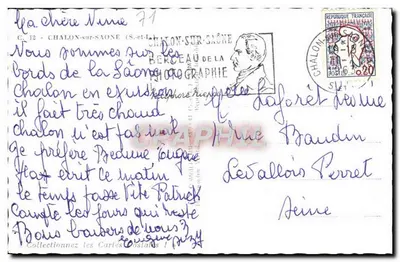 Ma chère Mimi 71
C. 12 - CHALON-sur-SAONE (S.-et-L.)
Nous sommes sur les
bords de la Saône
Chalon en excursion
il fait très chaud
chalon n'est pas mal
je préfère Beaune
Jean écrit ce matin
le temps passe Vite Patrick
compte les jours qui reste
Bons baisers de nous 3
Collectionnez les Cartes
CHALON-SUR-SAÔNE
BERCEAU DE LA
PHOTOGRAPHIE
REPUBLIQUE FRANÇAISE
0,20
CHALON
Laforêt
Rue Baudin
Levallois Perret
Seine